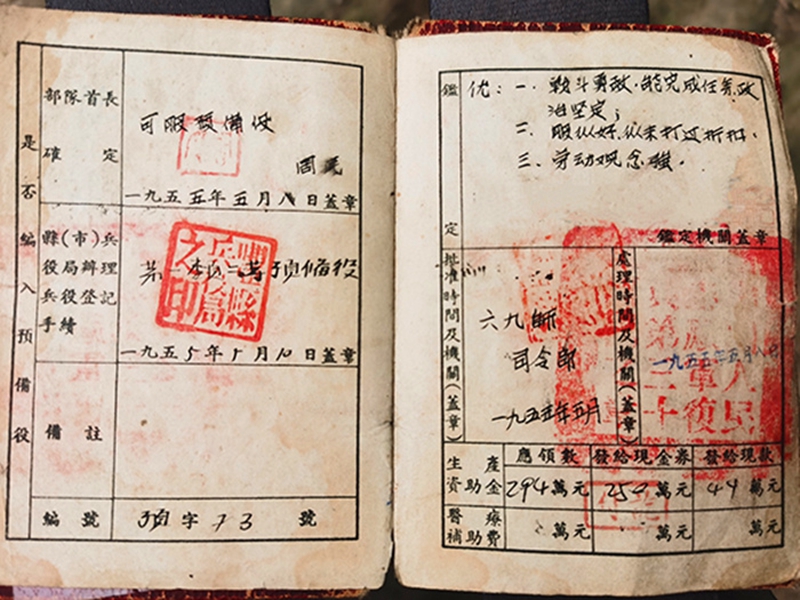 是否編入預備役
部隊首長
確定
可服預備役
一九五五年五月八日蓋章
縣(市)兵
役局辦理
兵役登記
手續
一九五5年5月10日蓋章
備註
編號
預字73號
鑑定
优：一、战斗勇敢.能完成任务政
治坚定；
二、服从好.从未打过折扣.
三、劳动观念强.
鑑定機關蓋章
批准時間及機關(蓋章)
六九師
司令部
一九五五年五月
處理時間及機關(蓋章)
一九五五年五月八日
生產
資助金
應領數
發給現金券
發給現款
294萬元
250萬元
44萬元
醫療
補助費
萬元
萬元
萬元